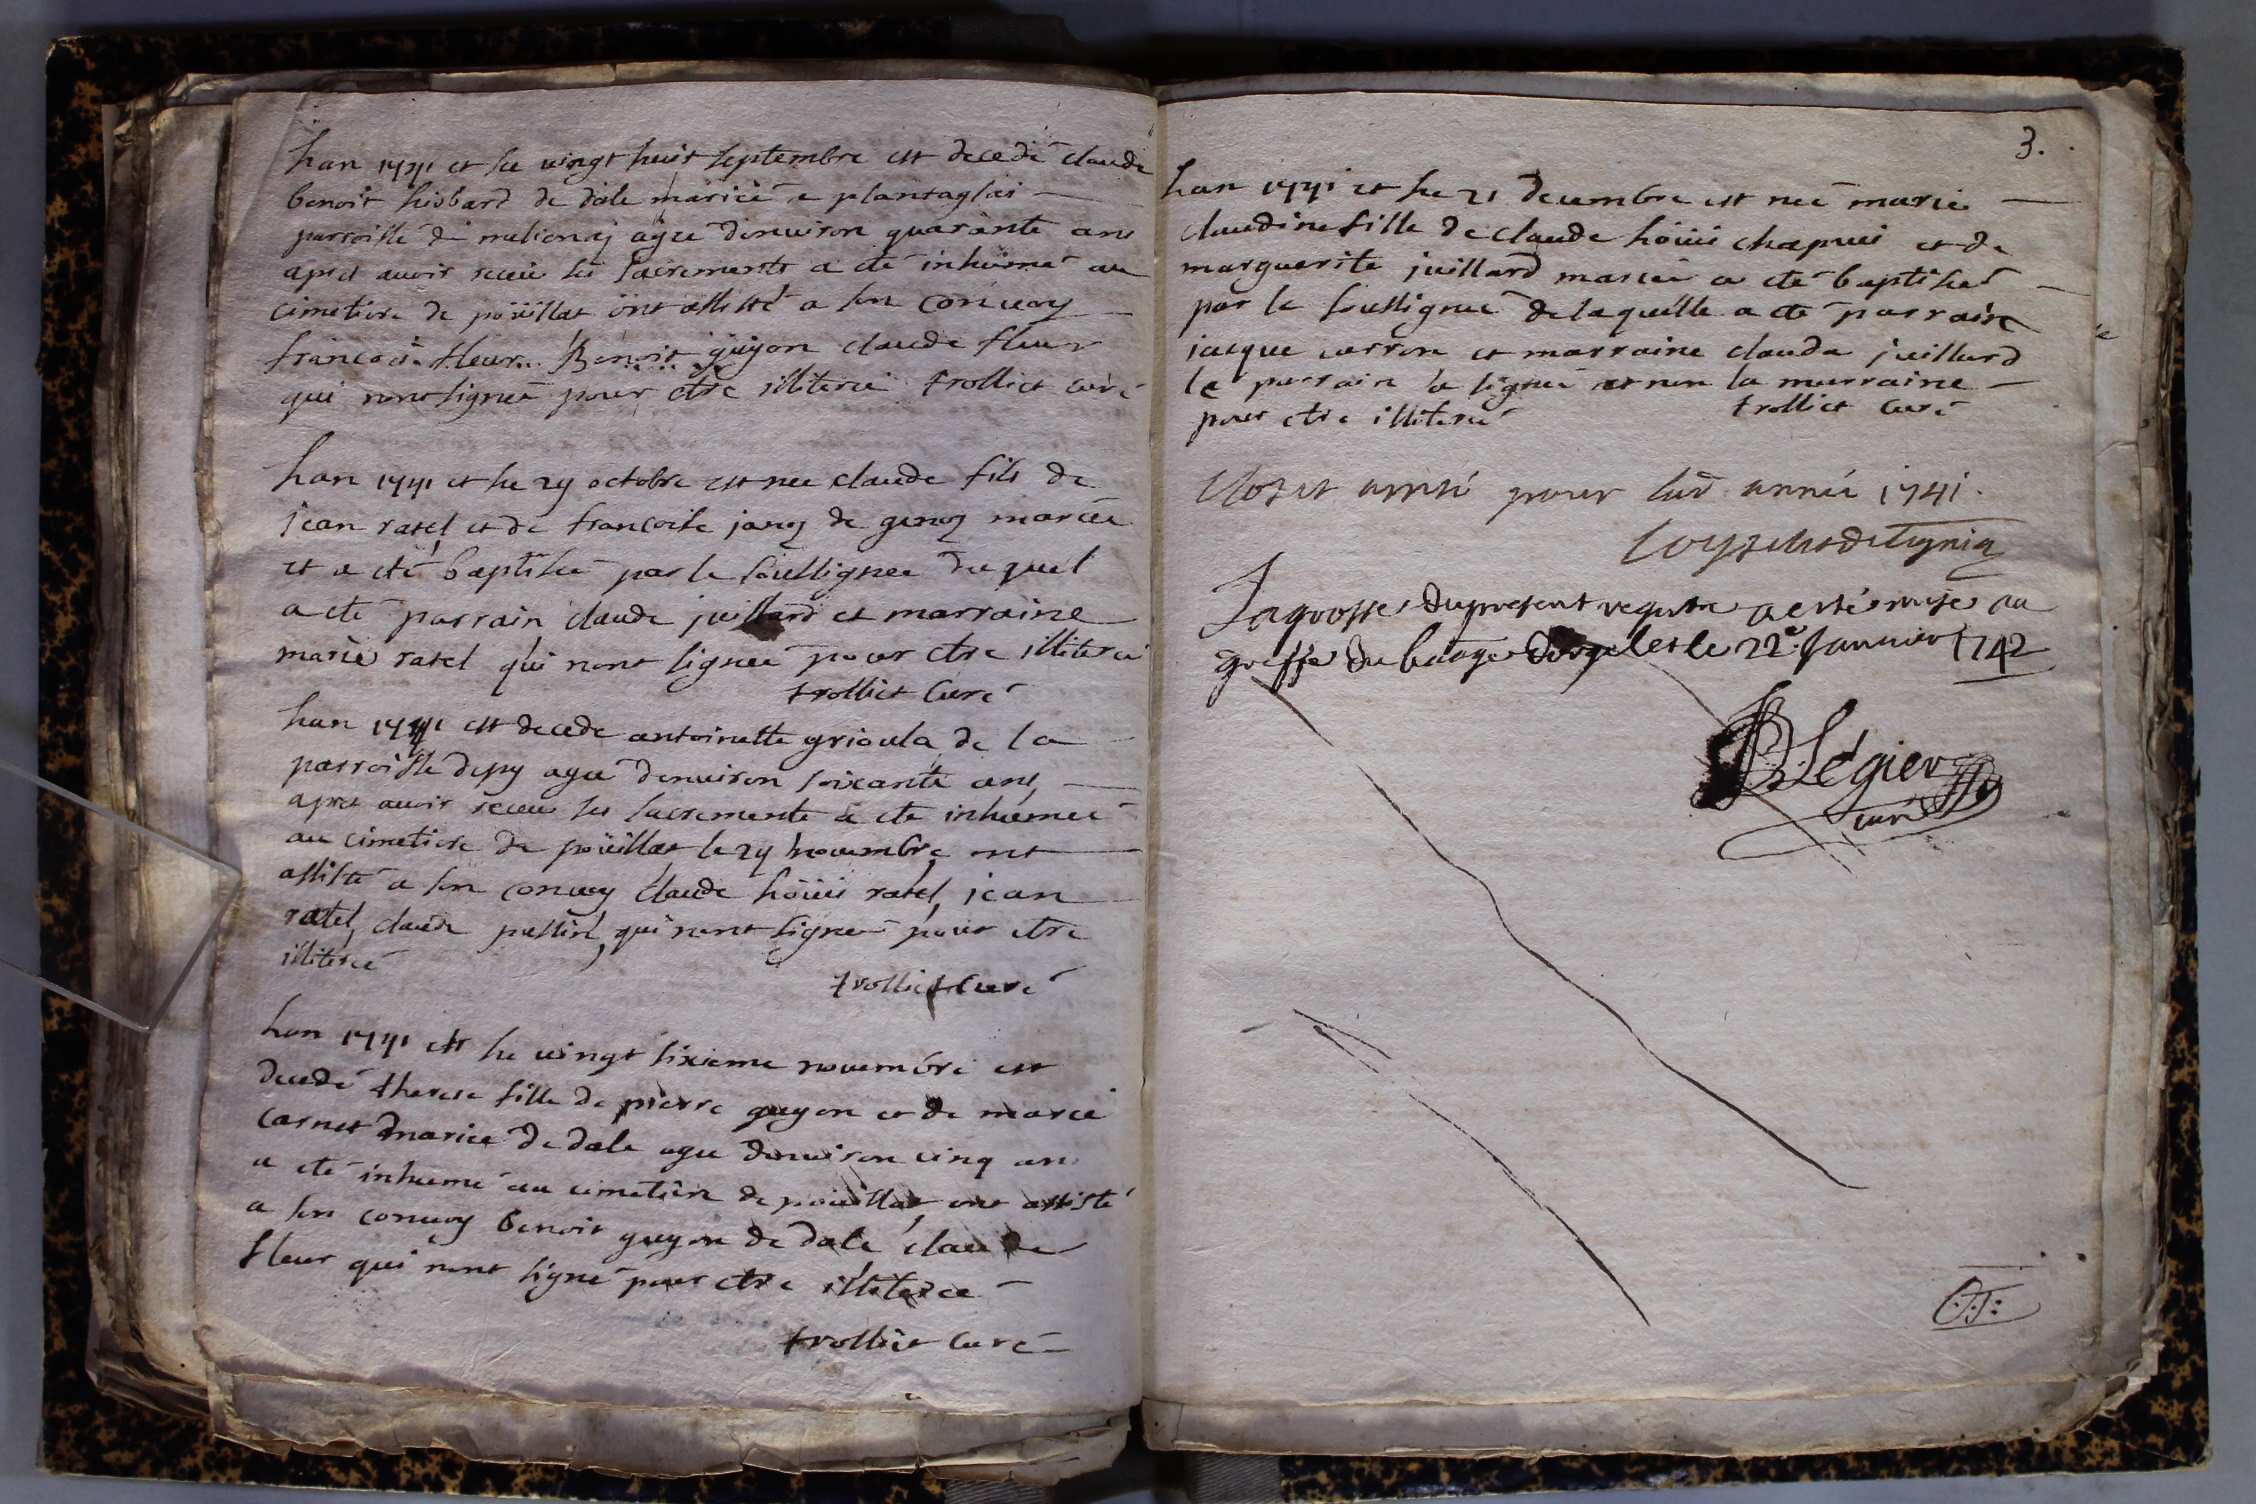 lan 1741 et le vingt huit septembre est decedé claude
benoit hiobard de dale mariéé a plantaglai
parroisse de melionaj agee denuiron quarante ans
apres auoir receu les sacrements a eté inhumé au
cimetiere de poüillat ont assisté a son conuoy
francois fleur Benoit guÿon claude fleur
qui nont signeé pour etre illiteréé trolliet curé
lan 1741 et le 29 octobre est nee claude fils de
jean ratel et de francoise janoj de genoj mariéé
et a eté baptiseé par le soussignee duquel
a eté parrain claude juillard et marraine
marie ratel qui nont signeé pour etre illiteré
trolliet Curé
lan 1741 est decede antoinette grioula de la
parroisse depy ageé denuiron soixante ans
apres auoir receu les sacrements a eté inhumeé
au cimetiere de poüillat le 29 nouembre ont
assisté a son conuoy claude höüis ratel, jean
ratel, claude pussin, qui nont signeé pour etre
illiteréé
trolliet Curé
lan 1741 et le vingt sixieme nouembre est
decedé therese fille de pierre guyon et de marié
carnet marieé de dale agee denuiron cinq ans
a eté inhumé au cimetiere de poüillat, ont assisté
a son conuoy benoit guyon de dale claude
fleur qui nont signé pour etre illiteréé
trolliet Curé
3.
lan 1741 et le 21 decembre est neé marie
claudine fille de claude höüis chapuis et de
marguerite juillard marieé a eté baptiseé
par le soussigneé de laquelle a eté parrain
jacque carron et marraine clauda juillard
le parrain a signeé et non la marraine
pour etre illitereé
trolliet Curé
Clos et arresté pour lad. année 1741.
La grosse du present registre a esté mise au
greffe du baage dorgelet le 22e. Januier 1742
Légier
curé